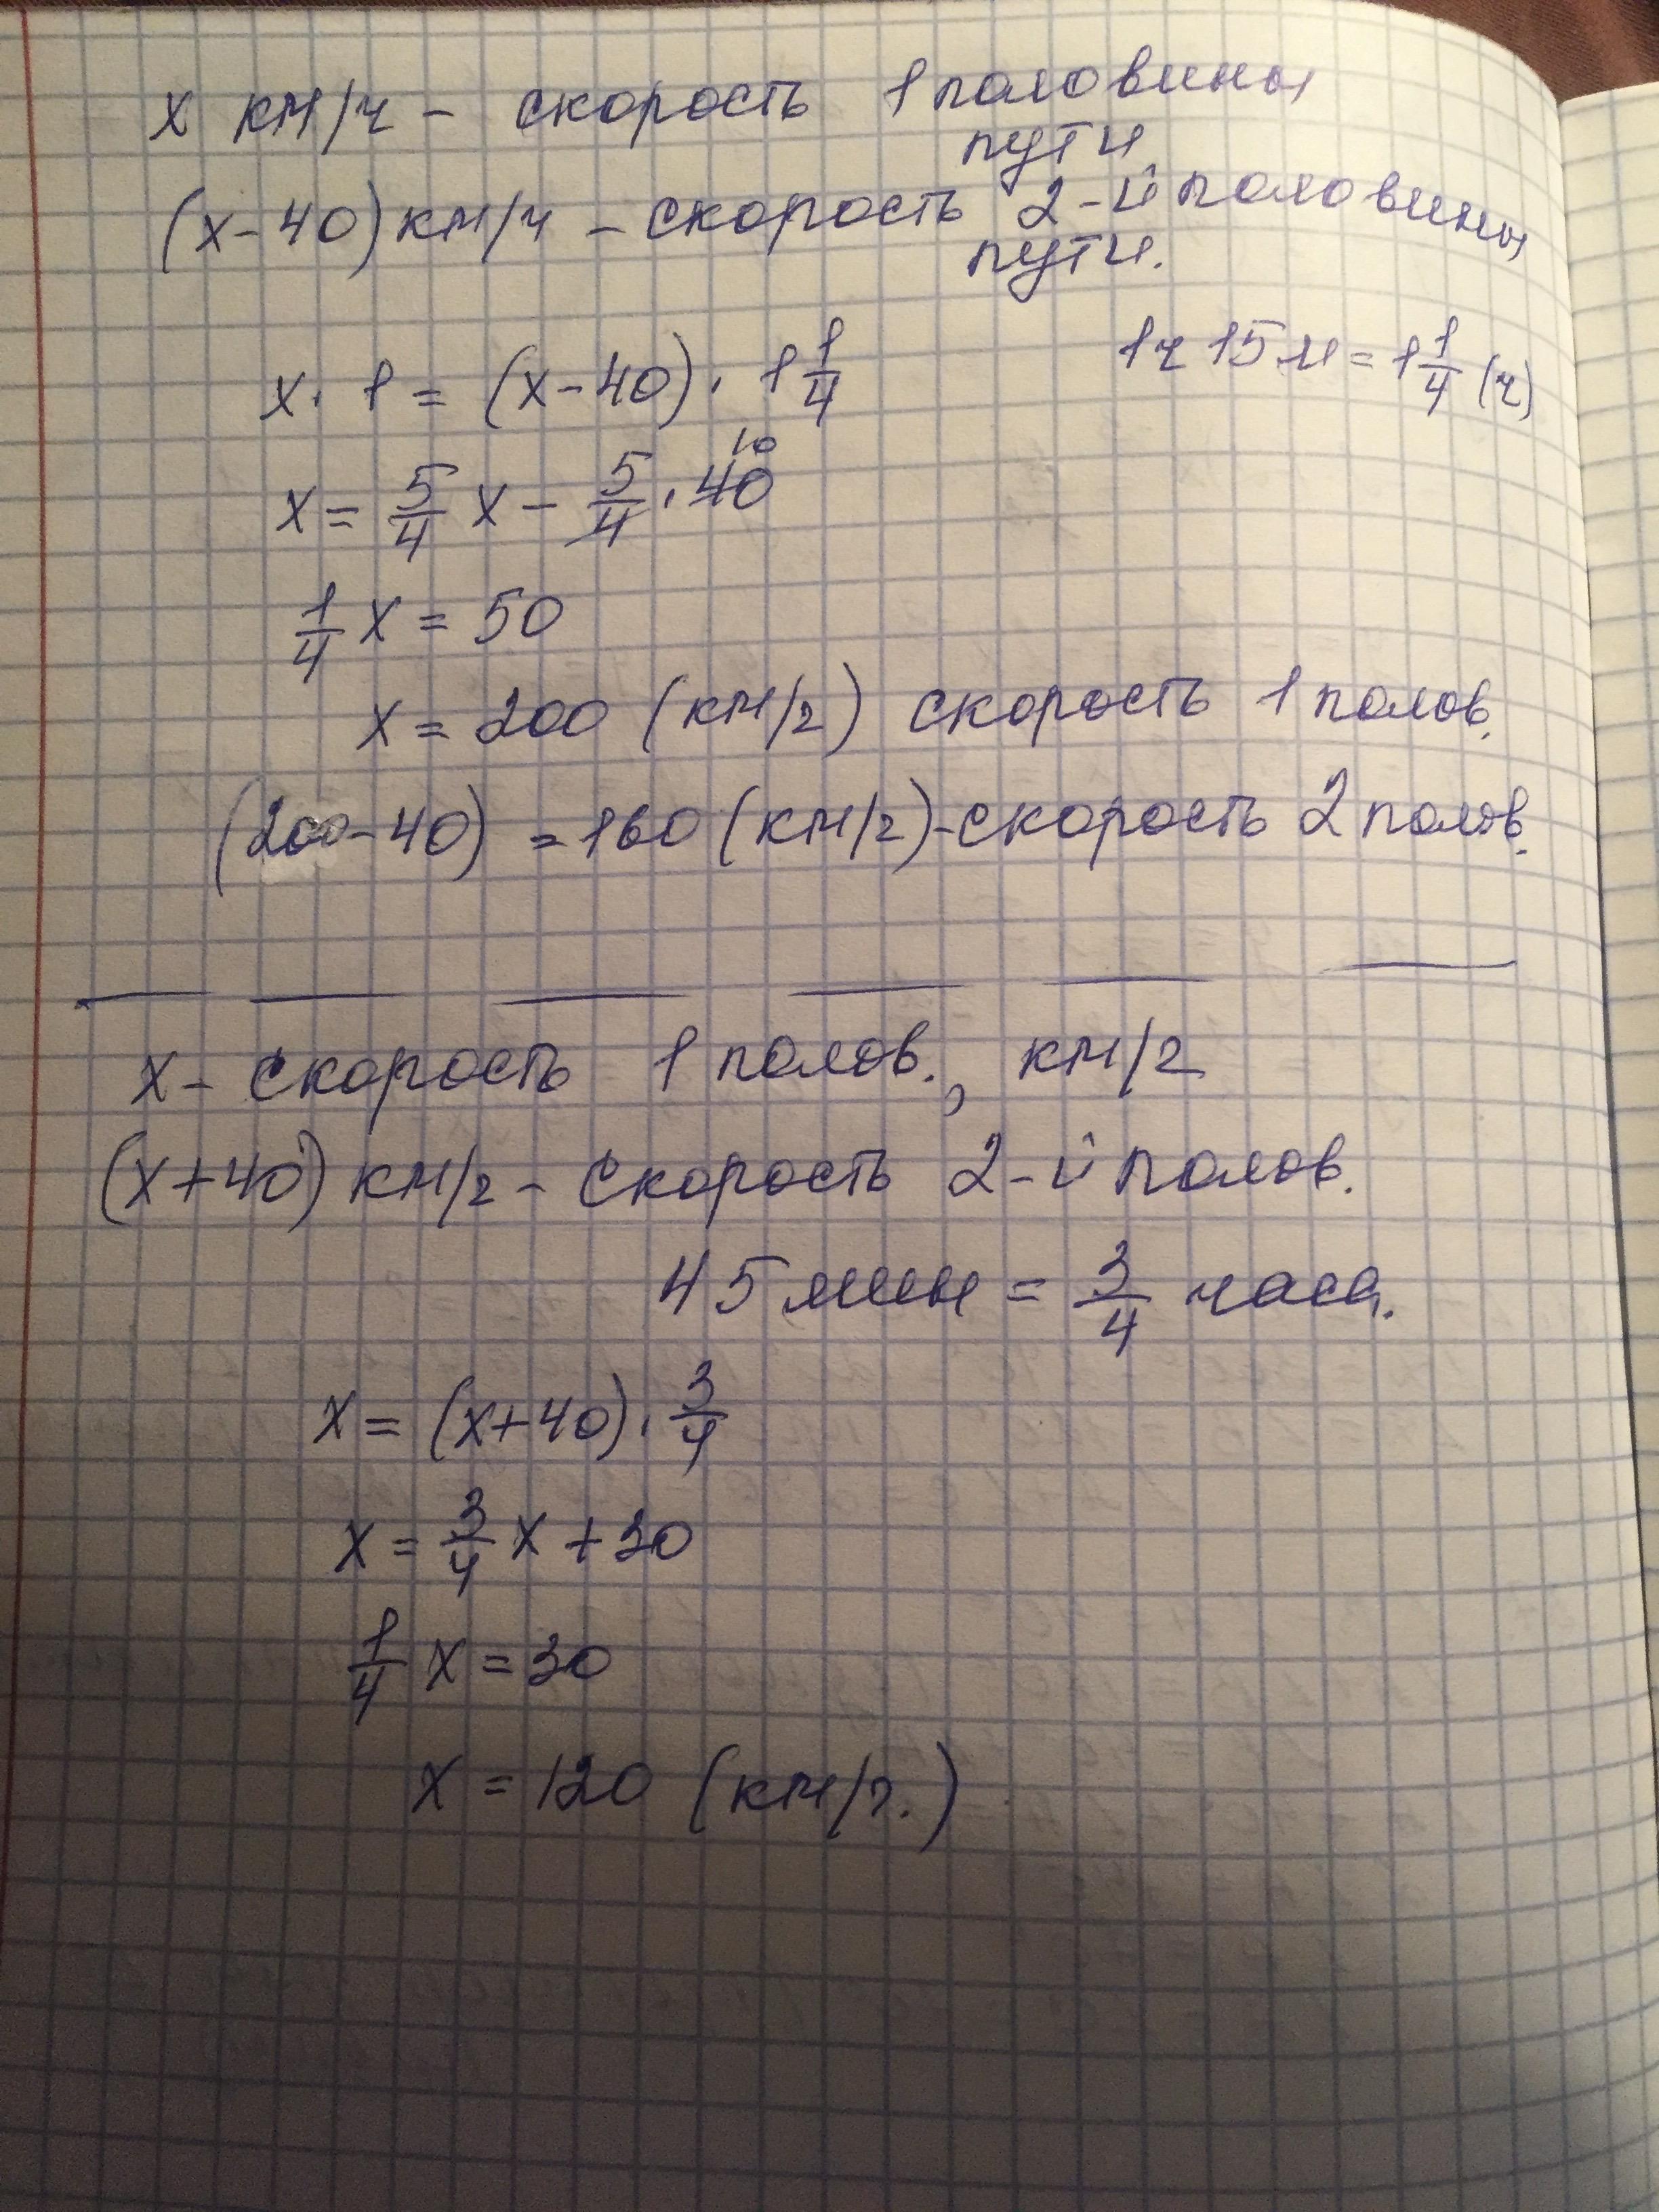 x км/ч - скорость 1 половины
пути
(x-40) км/ч - скорость 2-й половины
пути.
x · 1 = (x-40) · 1 1/4
1ч 15м = 1 1/4 (ч)
10
x = 5/4 x - 5/4 · 40
1/4 x = 50
x = 200 (км/ч) скорость 1 полов.
(200-40) = 160 (км/ч) - скорость 2 полов.
x - скорость 1 полов., км/ч
(x+40) км/ч - скорость 2-й полов.
45 мин = 3/4 часа.
x = (x+40) · 3/4
x = 3/4 x + 30
1/4 x = 30
x = 120 (км/ч.)